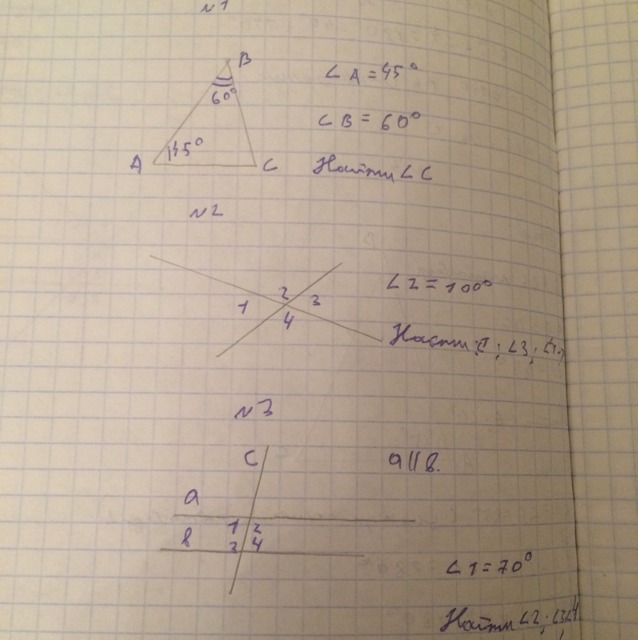 №1
B
∠A = 45°
60°
∠B = 60°
A 45° C
Найти ∠C
№2
2
1 3
4
∠2 = 100°
Найти ; ∠3 ;
№3
C
a || b.
a
1 2
b
3 4
∠1 = 70°
Найти ∠2 ; ∠3 ∠4